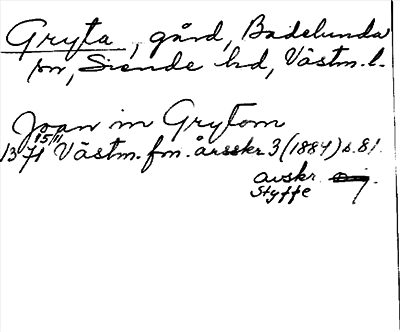 Gryta, gård, Badelunda
sn, Siende hd, Västm. l.
Joan in Grytom
1371 15/11 Västm. fm. årsskr 3 (1884) s. 81.
avskr.
Styffe